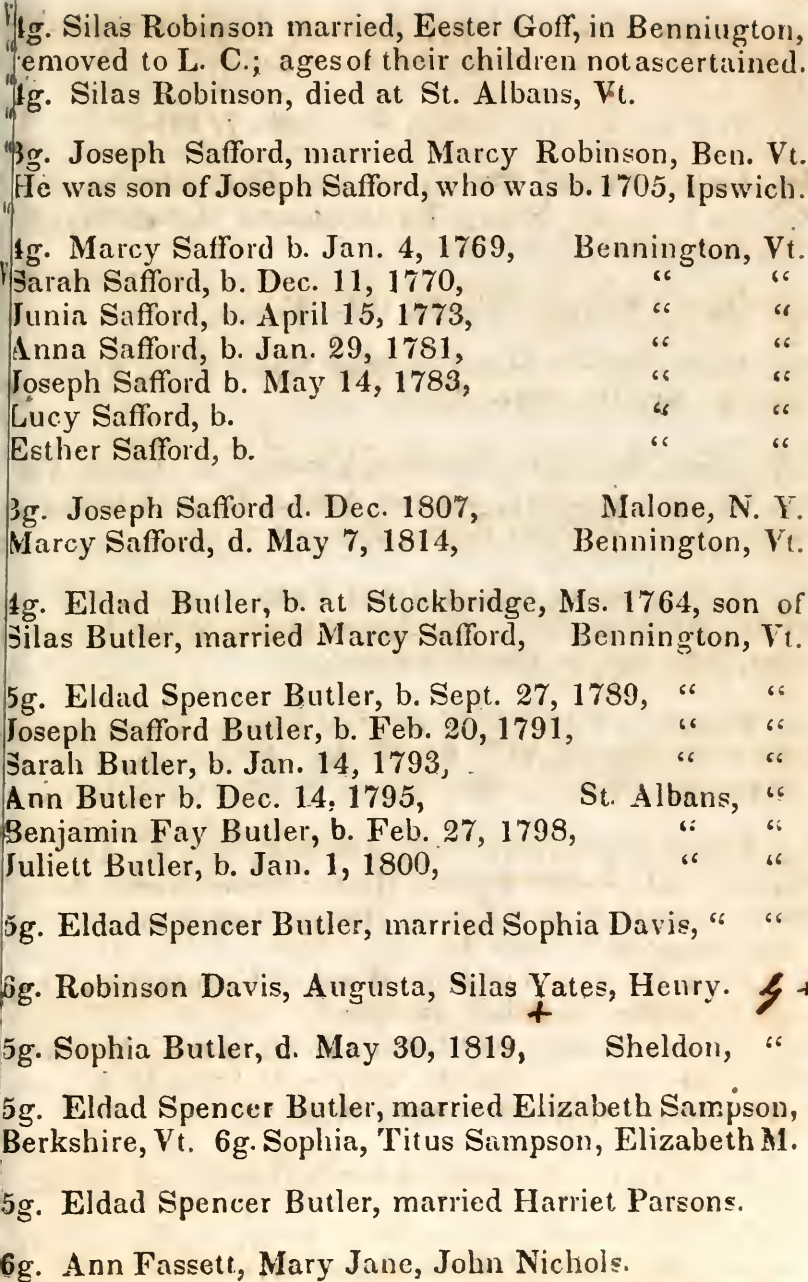 4g. Silas Robinson married, Eester Goff, in Bennington,
removed to L. C.; ages of their children not ascertained.
4g. Silas Robinson, died at St. Albans, Vt.
3g. Joseph Safford, married Marcy Robinson, Ben. Vt.
He was son of Joseph Safford, who was b. 1705, Ipswich.
4g. Marcy Safford b. Jan. 4, 1769, Bennington, Vt.
Sarah Safford, b. Dec. 11, 1770, “ “
Junia Safford, b. April 15, 1773, “ “
Anna Safford, b. Jan. 29, 1781, “ “
Joseph Safford b. May 14, 1783, “ “
Lucy Safford, b. “ “
Esther Safford, b. “ “
3g. Joseph Safford d. Dec. 1807, Malone, N. Y.
Marcy Safford, d. May 7, 1814, Bennington, Vt.
4g. Eldad Butler, b. at Stockbridge, Ms. 1764, son of
Silas Butler, married Marcy Safford, Bennington, Vt.
5g. Eldad Spencer Butler, b. Sept. 27, 1789, “ “
Joseph Safford Butler, b. Feb. 20, 1791, “ “
Sarah Butler, b. Jan. 14, 1793, “ “
Ann Butler b. Dec. 14, 1795, St. Albans, “
Benjamin Fay Butler, b. Feb. 27, 1798, “ “
Juliett Butler, b. Jan. 1, 1800, “ “
5g. Eldad Spencer Butler, married Sophia Davis, “ “
6g. Robinson Davis, Augusta, Silas Yates, Henry.
+
5g. Sophia Butler, d. May 30, 1819, Sheldon, “
5g. Eldad Spencer Butler, married Elizabeth Sampson,
Berkshire, Vt. 6g. Sophia, Titus Sampson, Elizabeth M.
5g. Eldad Spencer Butler, married Harriet Parsons.
6g. Ann Fassett, Mary Jane, John Nichols.